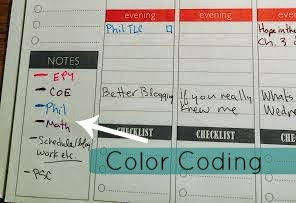 evening
evening
Phil TLC
Hope in the
Ch. 3
NOTES
EPY
COE
Phil
Math
Schedule/
work etc.
PSC
Better Blogging
If you really
Knew me
What's
Wedne
CHECKLIST
CHECKLIST
Color Coding